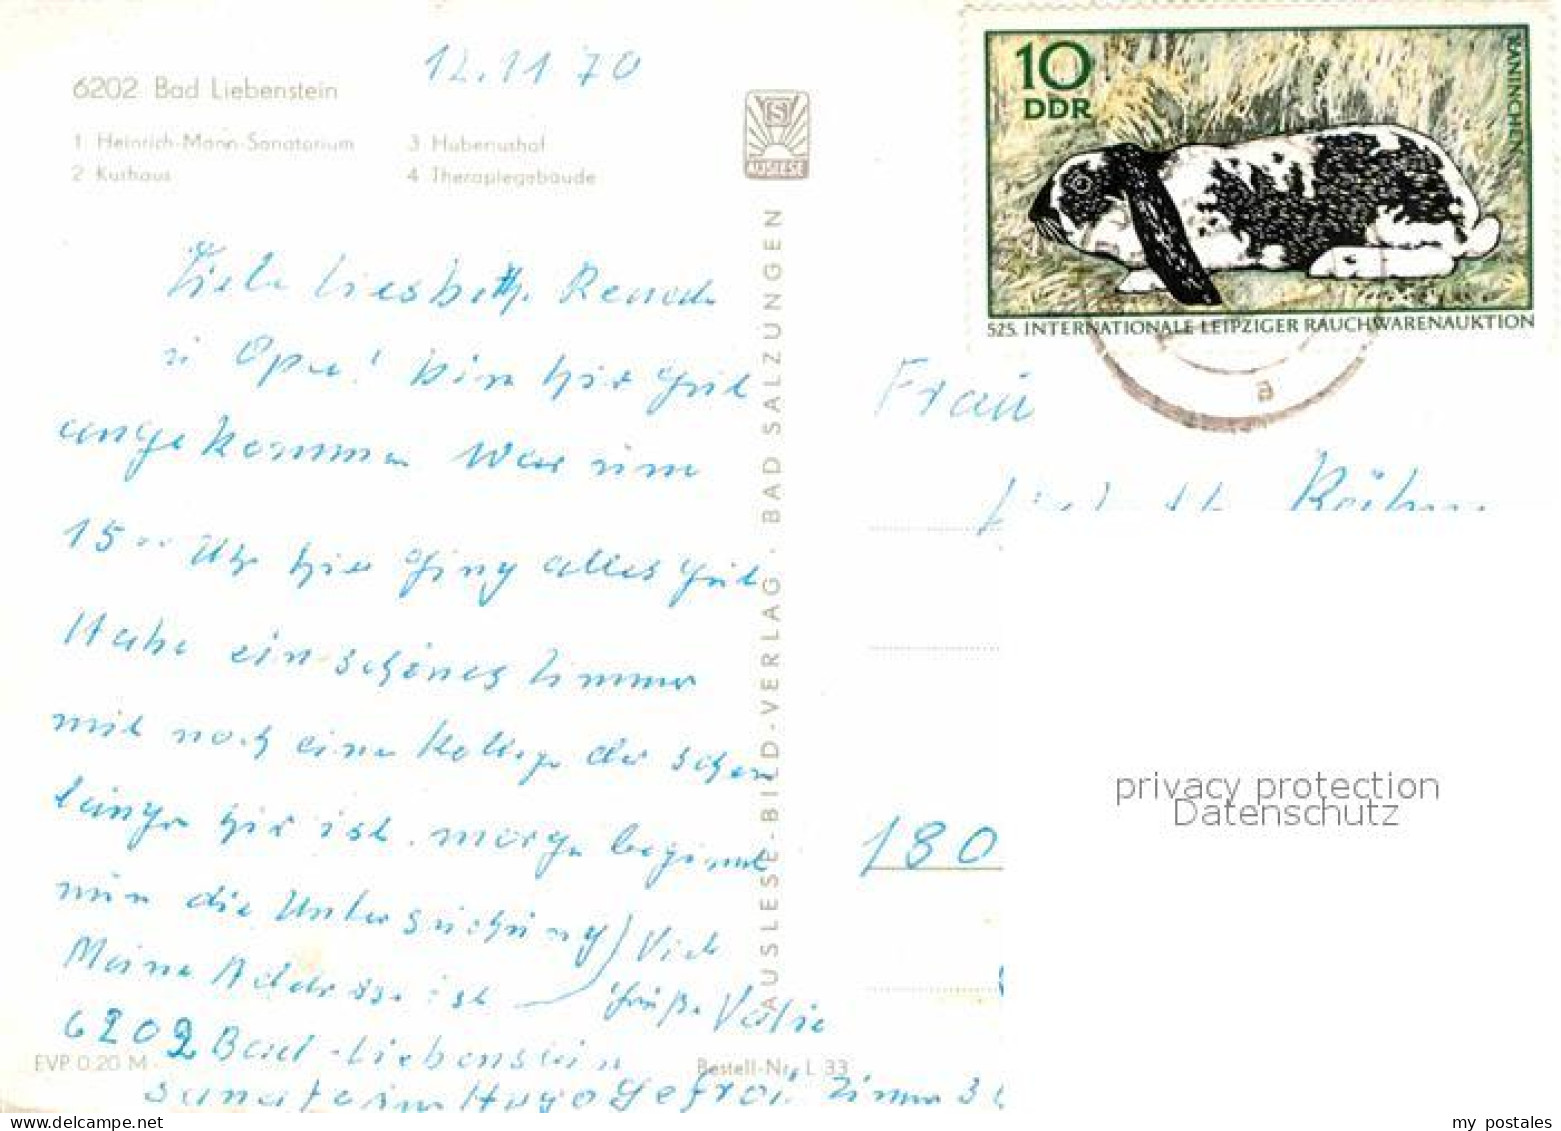 12.11 70
6202 Bad Liebenstein
1 Heinrich-Mann-Sanatorium
2 Kurhaus
3 Hubertushof
4 Therapiegebäude
AUSLESE
10
DDR
KANINCHEN
525. INTERNATIONALE LEIPZIGER RAUCHWARENAUKTION
a
Liesbeth
u Opa! bin hir gut
angekommen War um
15°° Uhr hir Ging alles gut
Habe ein schönes Zimmer
mit noch einen Kollege der schon
länger hir ist. morgen beginnt
nun die Untersuchung
Meine Adresse ist
Viele
Grüße
6202 Bad-Liebenstein
Sanatorium Hugo Gefroi Zimmer 3
EVP 0.20 M
Bestell-Nr. L 33
AUSLESE-BILD-VERLAG · BAD SALZUNGEN
Frau
180
privacy protection
Datenschutz
my postales